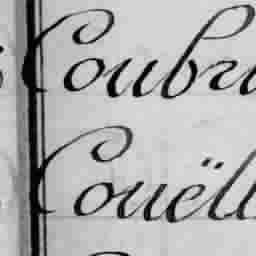 Coubru
Couëll